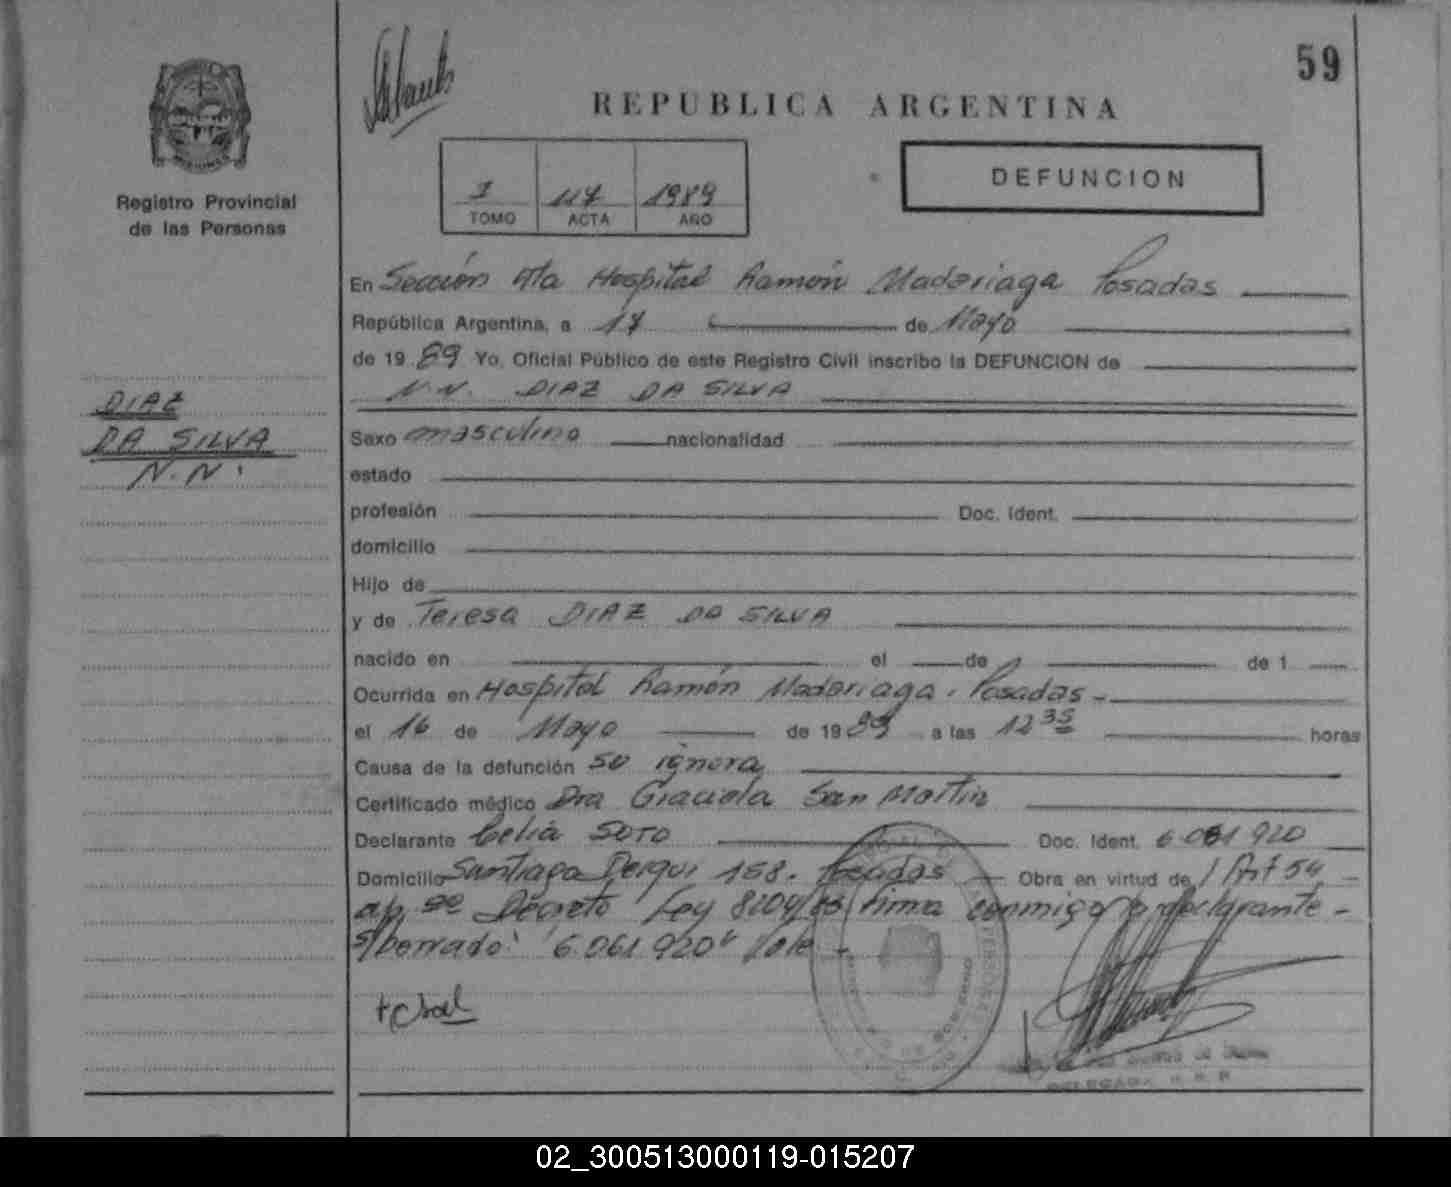 59
REPUBLICA ARGENTINA
DEFUNCION
Registro Provincial
de las Personas
1 117 1989
TOMO ACTA AÑO
En Sección 4ta Hospital Ramón Madariaga Posadas
República Argentina, a 17 de Mayo
de 1989 Yo, Oficial Público de este Registro Civil inscribo la DEFUNCION de
N.N. DIAZ DA SILVA
DIAZ
DA SILVA
N.N.
Sexo masculino nacionalidad
estado
profesión Doc. Ident.
domicilio
Hijo de
y de Teresa DIAZ DA SILVA
nacido en el de de 1
Ocurrida en Hospital Ramón Madariaga. Posadas-
el 16 de Mayo de 1989 a las 12 35 horas
Causa de la defunción se ignora
Certificado médico Dra Graciela San Martin
Declarante Celia SOTO Doc. Ident. 6.061 920
Domicilio Santiago Derqui 158. Posadas Obra en virtud de / Art 54
Decreto Ley 8204/63 firma conmigo declarante-
s/borrado: "6.061 920" Vale-
DELEGADA R. P. P.
02_300513000119-015207